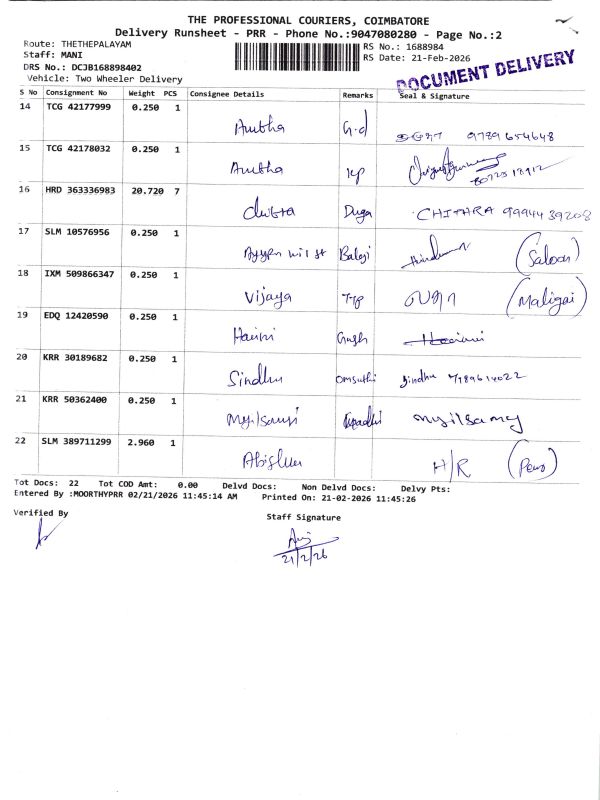 THE PROFESSIONAL COURIERS, COIMBATORE
Delivery Runsheet - PRR - Phone No.:9047080280 - Page No.:2
Route: THETHEPALAYAM
Staff: MANI
DRS No.: DCJB168898402
Vehicle: Two Wheeler Delivery
RS No.: 1688984
RS Date: 21-Feb-2026
DOCUMENT DELIVERY
S No Consignment No Weight PCS Consignee Details Remarks Seal & Signature
14 TCG 42177999 0.250 1 Anitha G.d 9789654648
15 TCG 42178032 0.250 1 Anitha
16 HRD 363336983 20.720 7 Chitra Duga CHITHRA 9994439208
17 SLM 10576956 0.250 1 Balaji (Saloon)
18 IXM 509866347 0.250 1 Vijaya (Maligai)
19 EDQ 12420590 0.250 1 Harini
20 KRR 30189682 0.250 1 Sindhu Sindhu
21 KRR 50362400 0.250 1 Myilsamy myilsamy
22 SLM 389711299 2.960 1 H/R
Tot Docs: 22 Tot COD Amt: 0.00 Delvd Docs: Non Delvd Docs: Delvy Pts:
Entered By :MOORTHYPRR 02/21/2026 11:45:14 AM Printed On: 21-02-2026 11:45:26
Verified By
Staff Signature
21/2/26